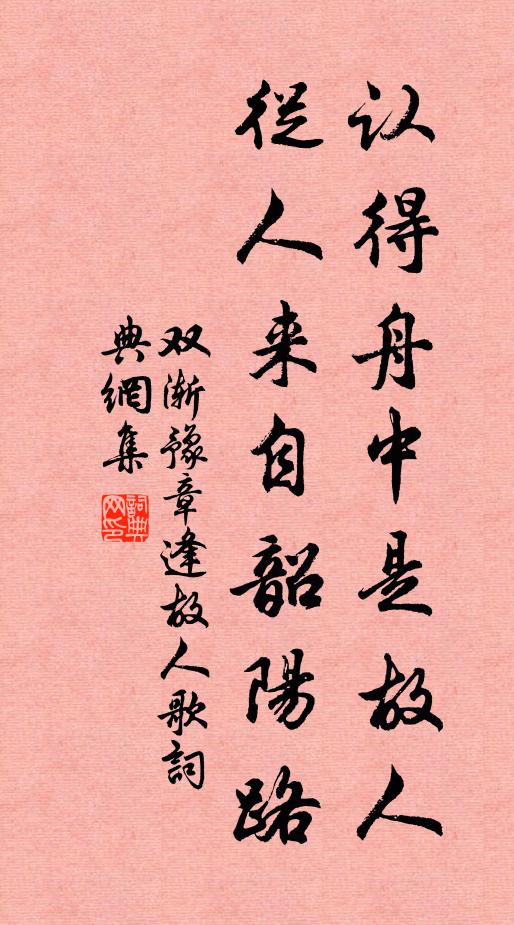 认得舟中是故人
從人来自韶陽路
双渐豫章逢故人歌詞
典網集
詞典网印